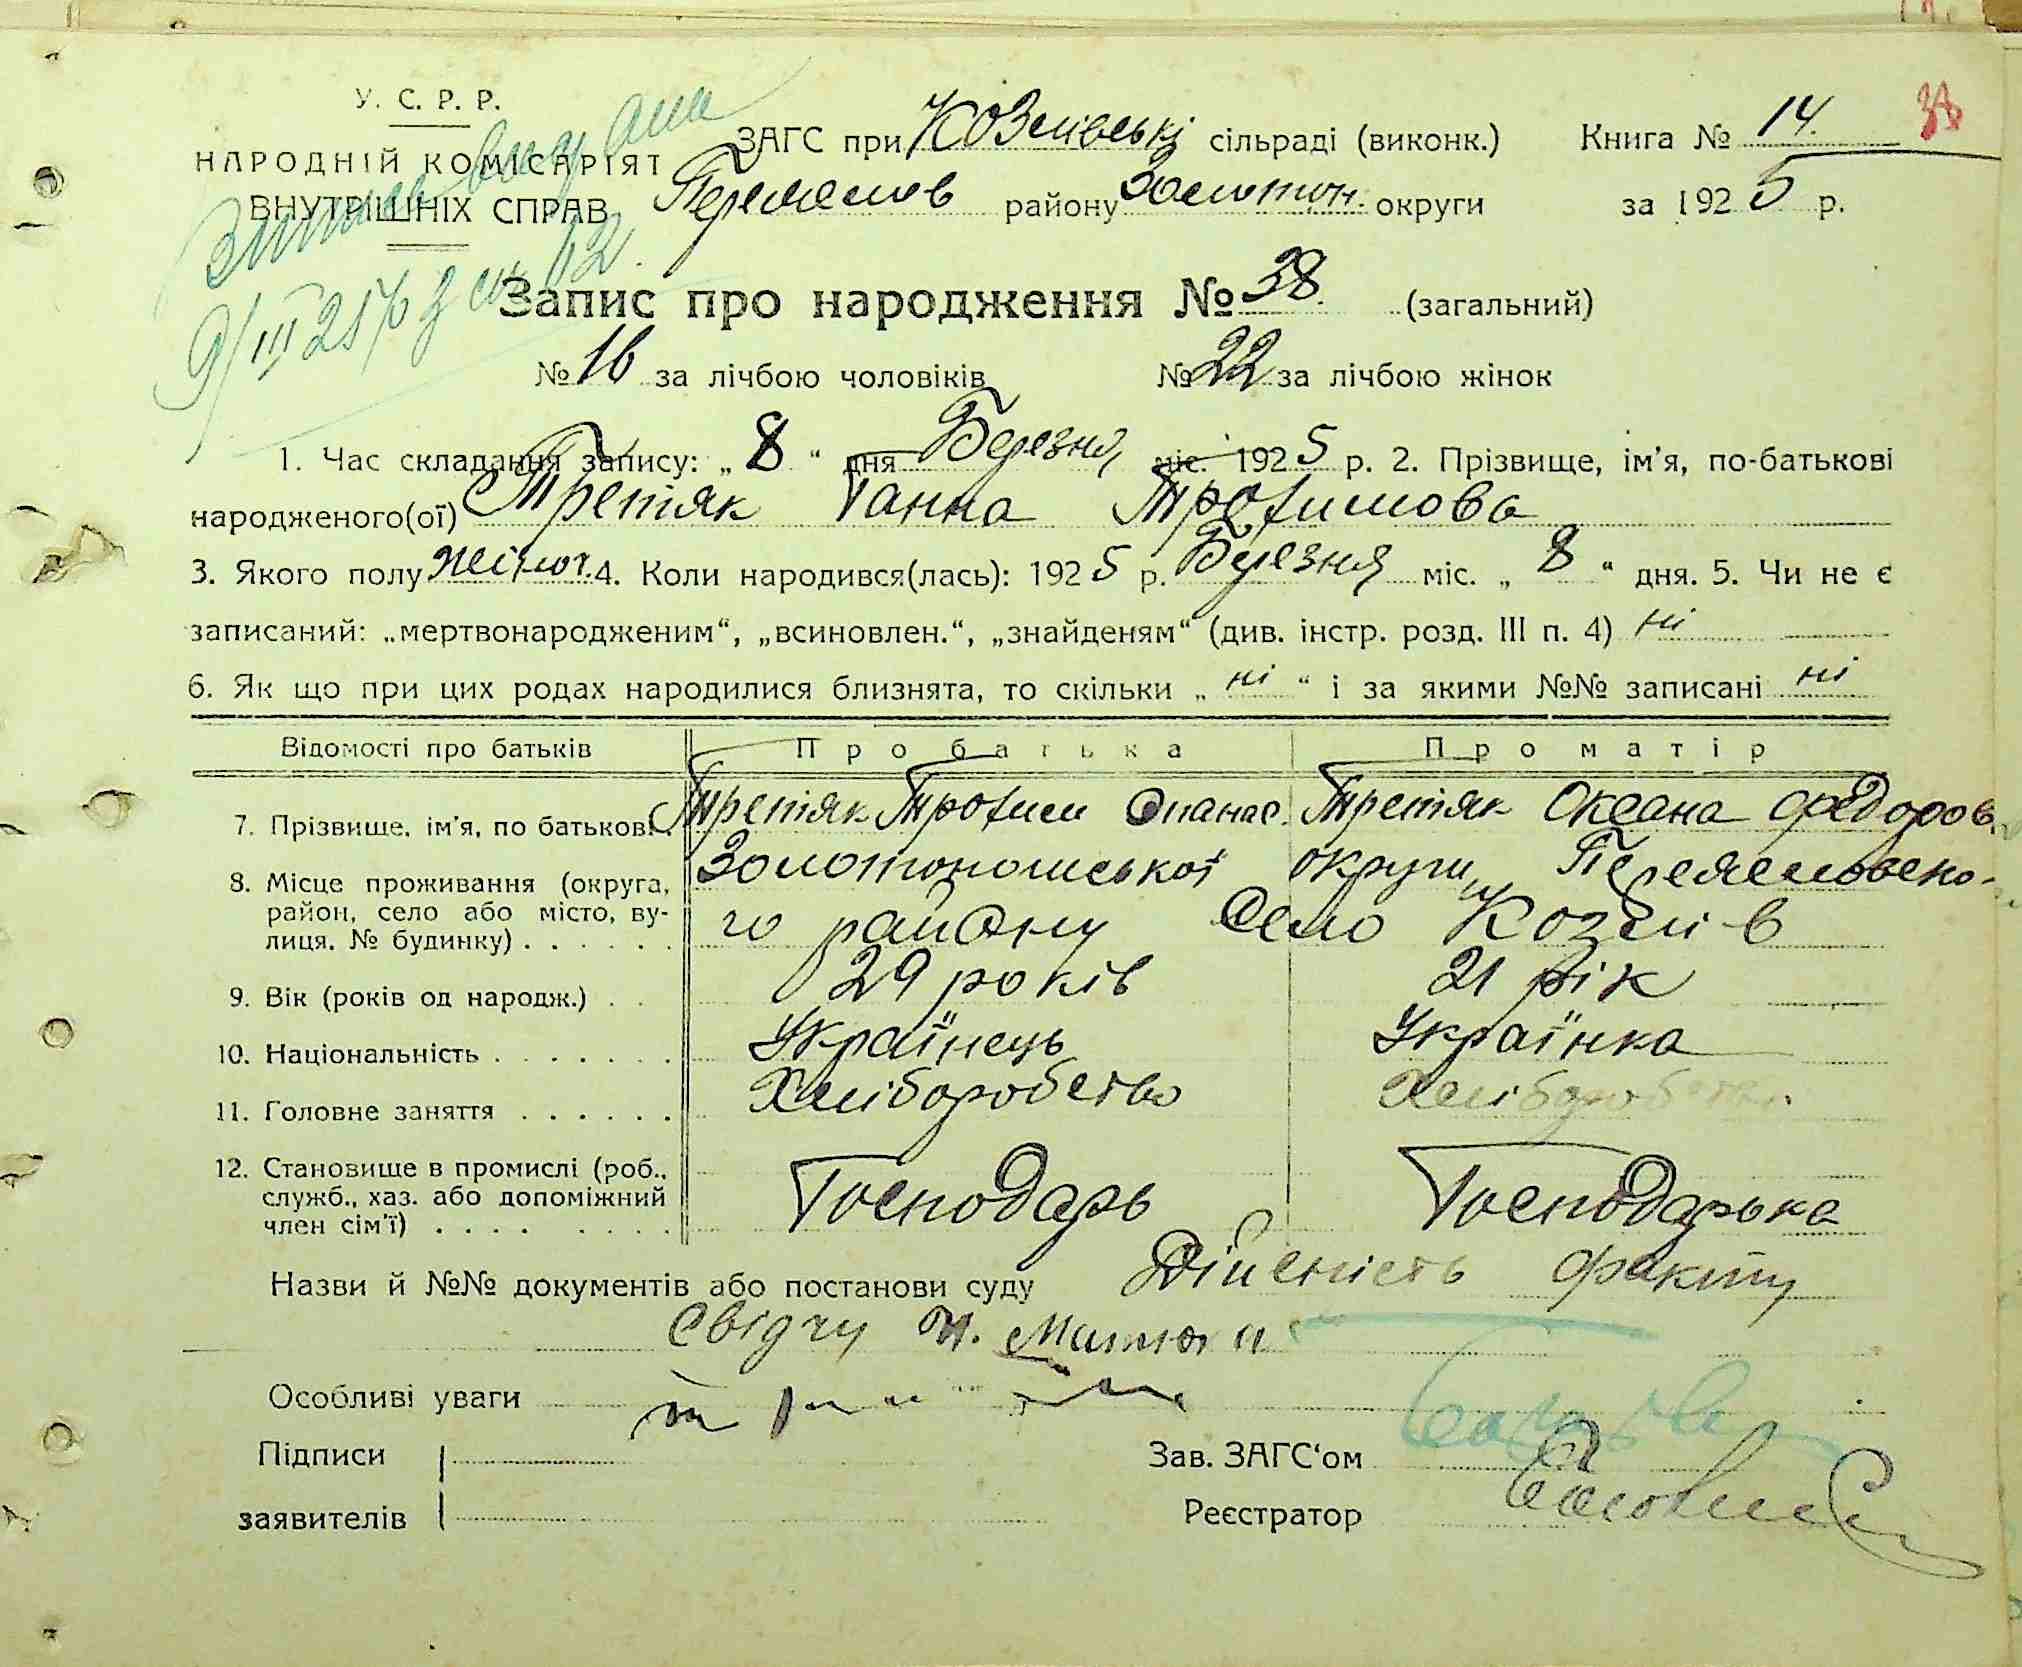 У. С. Р. Р.
НАРОДНІЙ КОМІСАРІЯТ
ВНУТРІШНІХ СПРАВ
Виписъ видана
9/III 25 р з
ЗАГС при Козлівські сільраді (виконк.) Книга № 14. 38
Переяслов району Золотон. округи за 1925 р.
Запис про народження № 38. (загальний)
№ 16 за лічбою чоловіків № 22 за лічбою жінок
1. Час складання запису: „ 8 “ дня Березня міс. 1925 р. 2. Прізвище, ім'я, по-батькові
народженого(ої) Третяк Ганна Трофимова
3. Якого полу жіноч. 4. Коли народився(лась): 1925 р. Березня міс. „ 8 “ дня. 5. Чи не є
записаний: „мертвонародженим“, „всиновлен.“, „знайденям“ (див. інстр. розд. III п. 4) ні
6. Як що при цих родах народилися близнята, то скільки „ ні “ і за якими №№ записані ні
Відомості про батьків Про батька Про матір
7. Прізвище, ім'я, по батькові. Третяк Трофим Опанас. Третяк Оксана Федоров.
8. Місце проживання (округа, Золотоношської округи Переяславсько-
район, село або місто, ву- го району Село Козлів
лиця, № будинку) . . . . . .
9. Вік (років од народж.) . . 29 років 21 рік
10. Національність . . . . . . . Українець Українка
11. Головне заняття . . . . . . Хліборобство Хліборобство
12. Становище в промислі (роб.,
служб., хаз. або допоміжний Господарь Господарька
член сім'ї) . . . . . . . .
Назви й №№ документів або постанови суду Дійсність факту
свідчу
Особливі уваги
Підписи Зав. ЗАГС'ом
заявителів Реєстратор